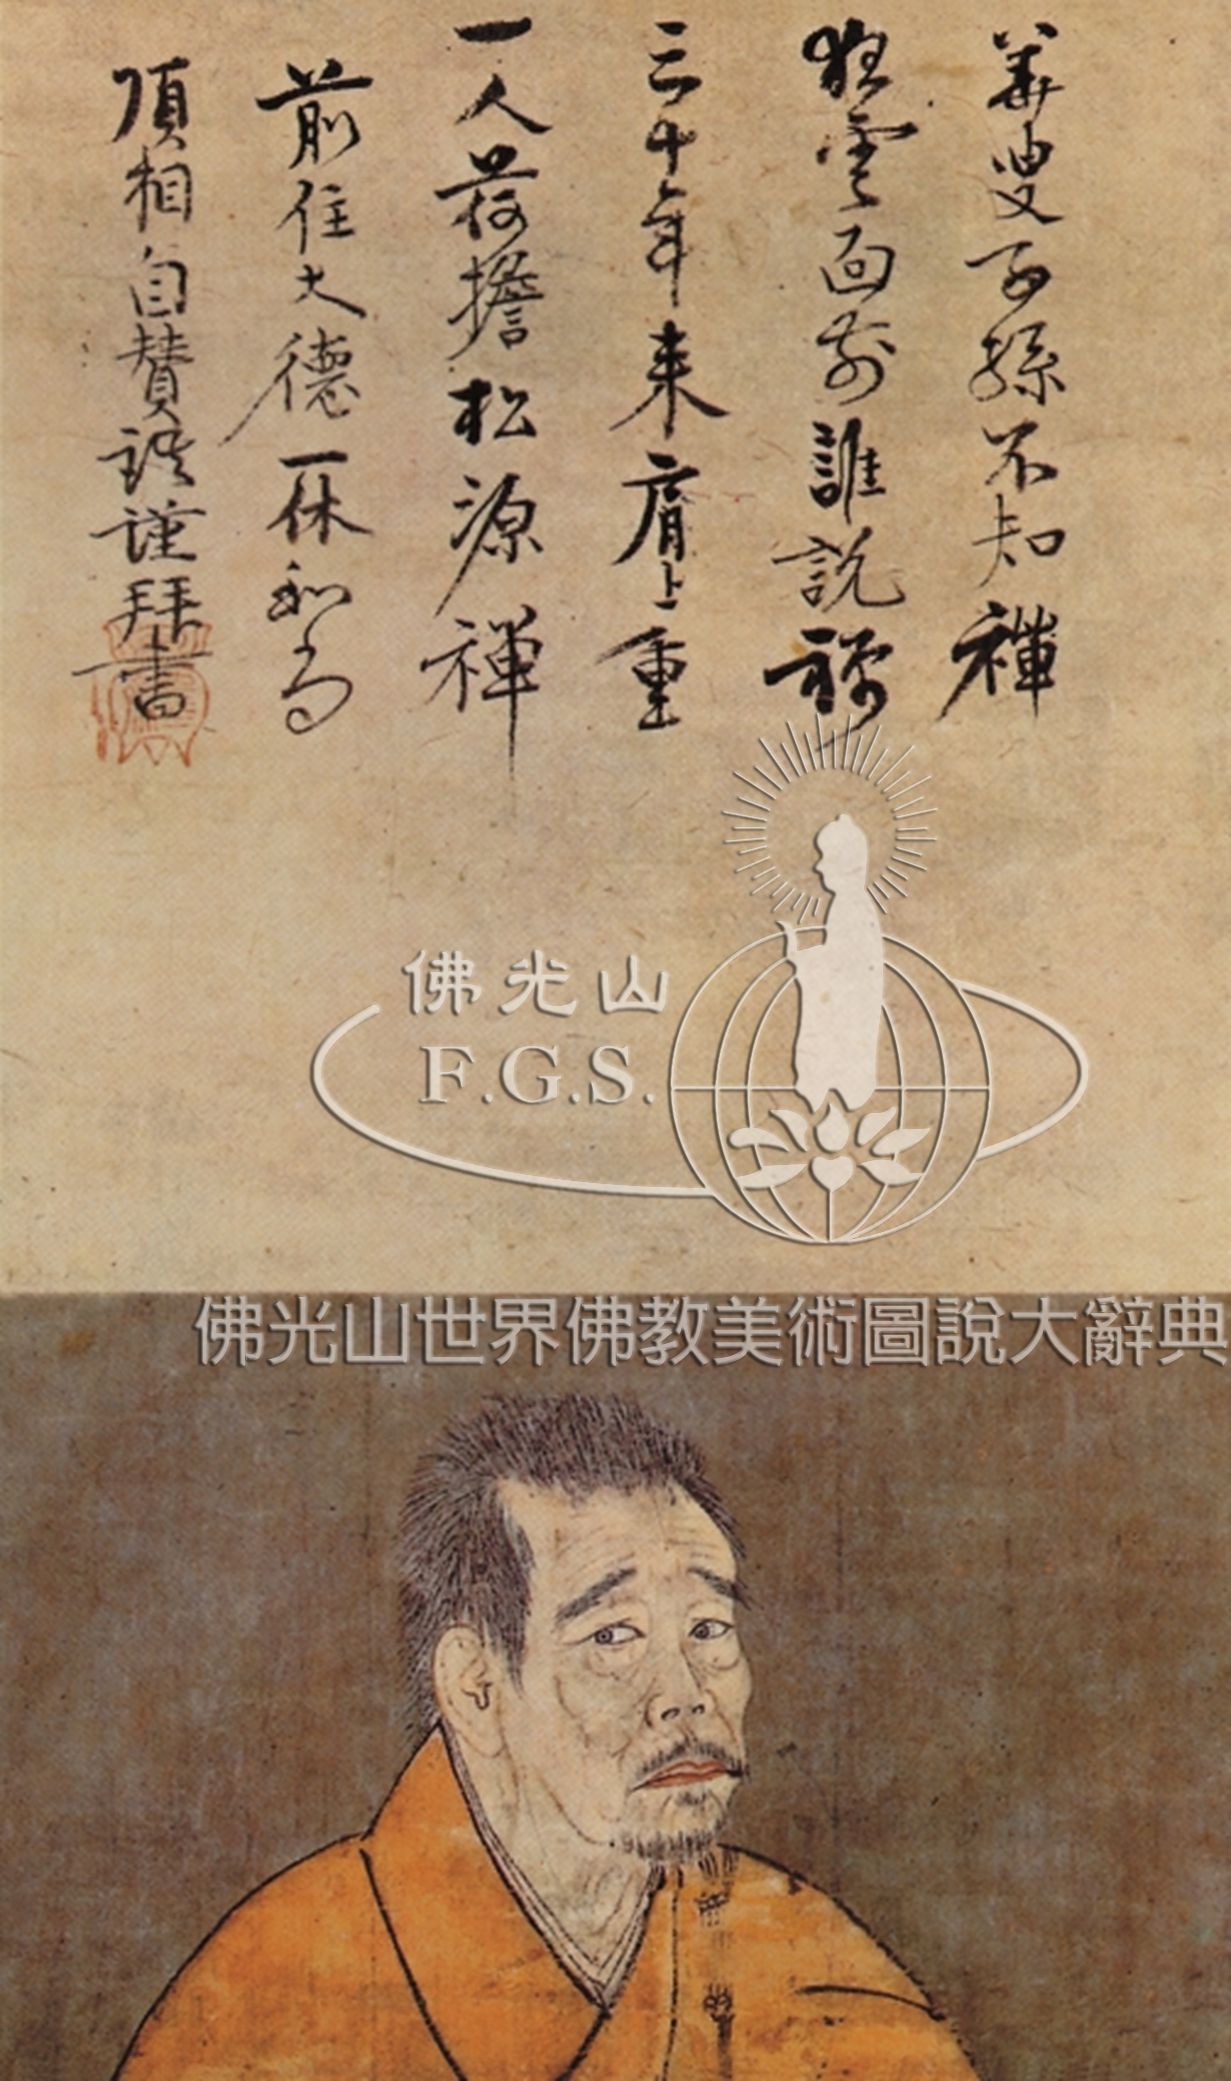 華叟子孫不知禪
狂雲面前誰說禪
三十年來肩上重
一人荷擔松源禪
前住大德一休和尚
頂相自贊談謹拜書
佛光山
F.G.S.
佛光山世界佛教美術圖說大辭典